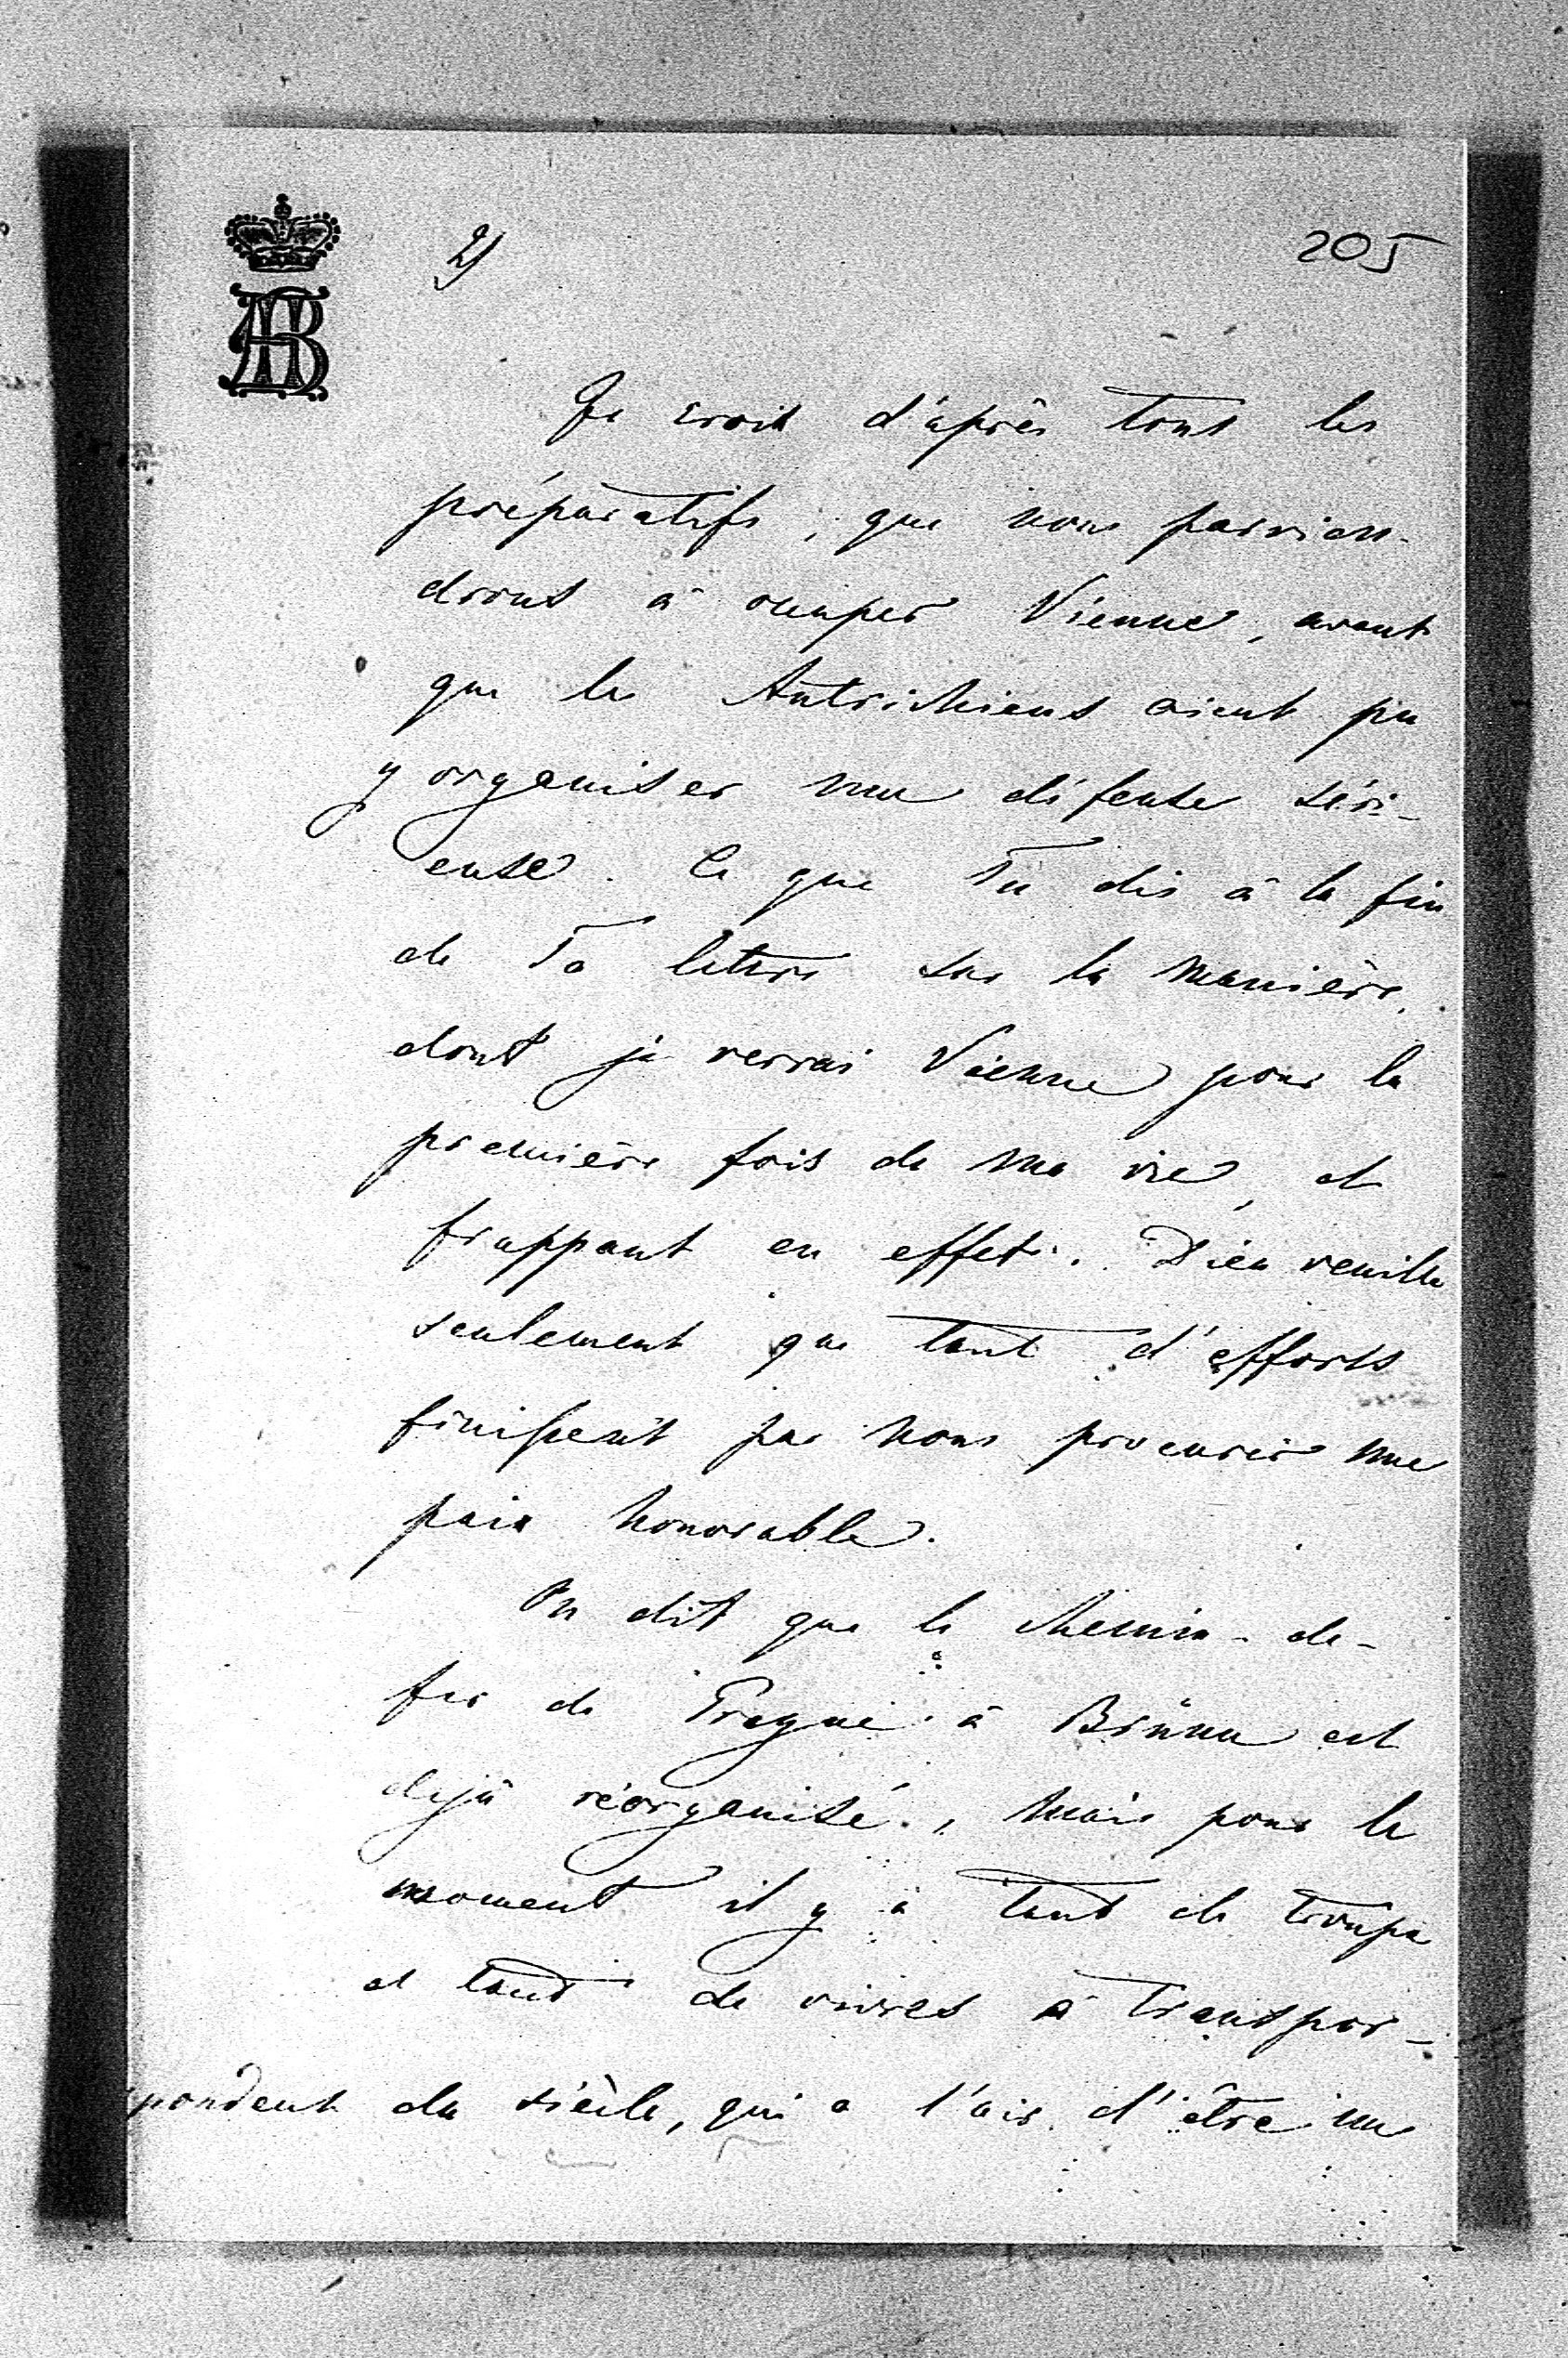 2)
205
AB
Je crois d'après tous les
préparatifs, que nous parvien-
drons à occuper Vienne, avant
que les Autrichiens aient pu
y organiser une défense séri-
euse. Ce que Tu dis à la fin
de Ta lettre sur la manière,
dont je verrai Vienne pour la
première fois de ma vie, est
frappant en effet. Dieu veuille
seulement que tant d'efforts
finissent par nous procurer une
paix honorable.
On dit que le chemin-de-
fer de Prague à Brünn est
déjà réorganisé, mais pour le
moment il y a tant de troupes
et tant de vivres à transpor-
pondent du siècle, qui a l'air d'être un